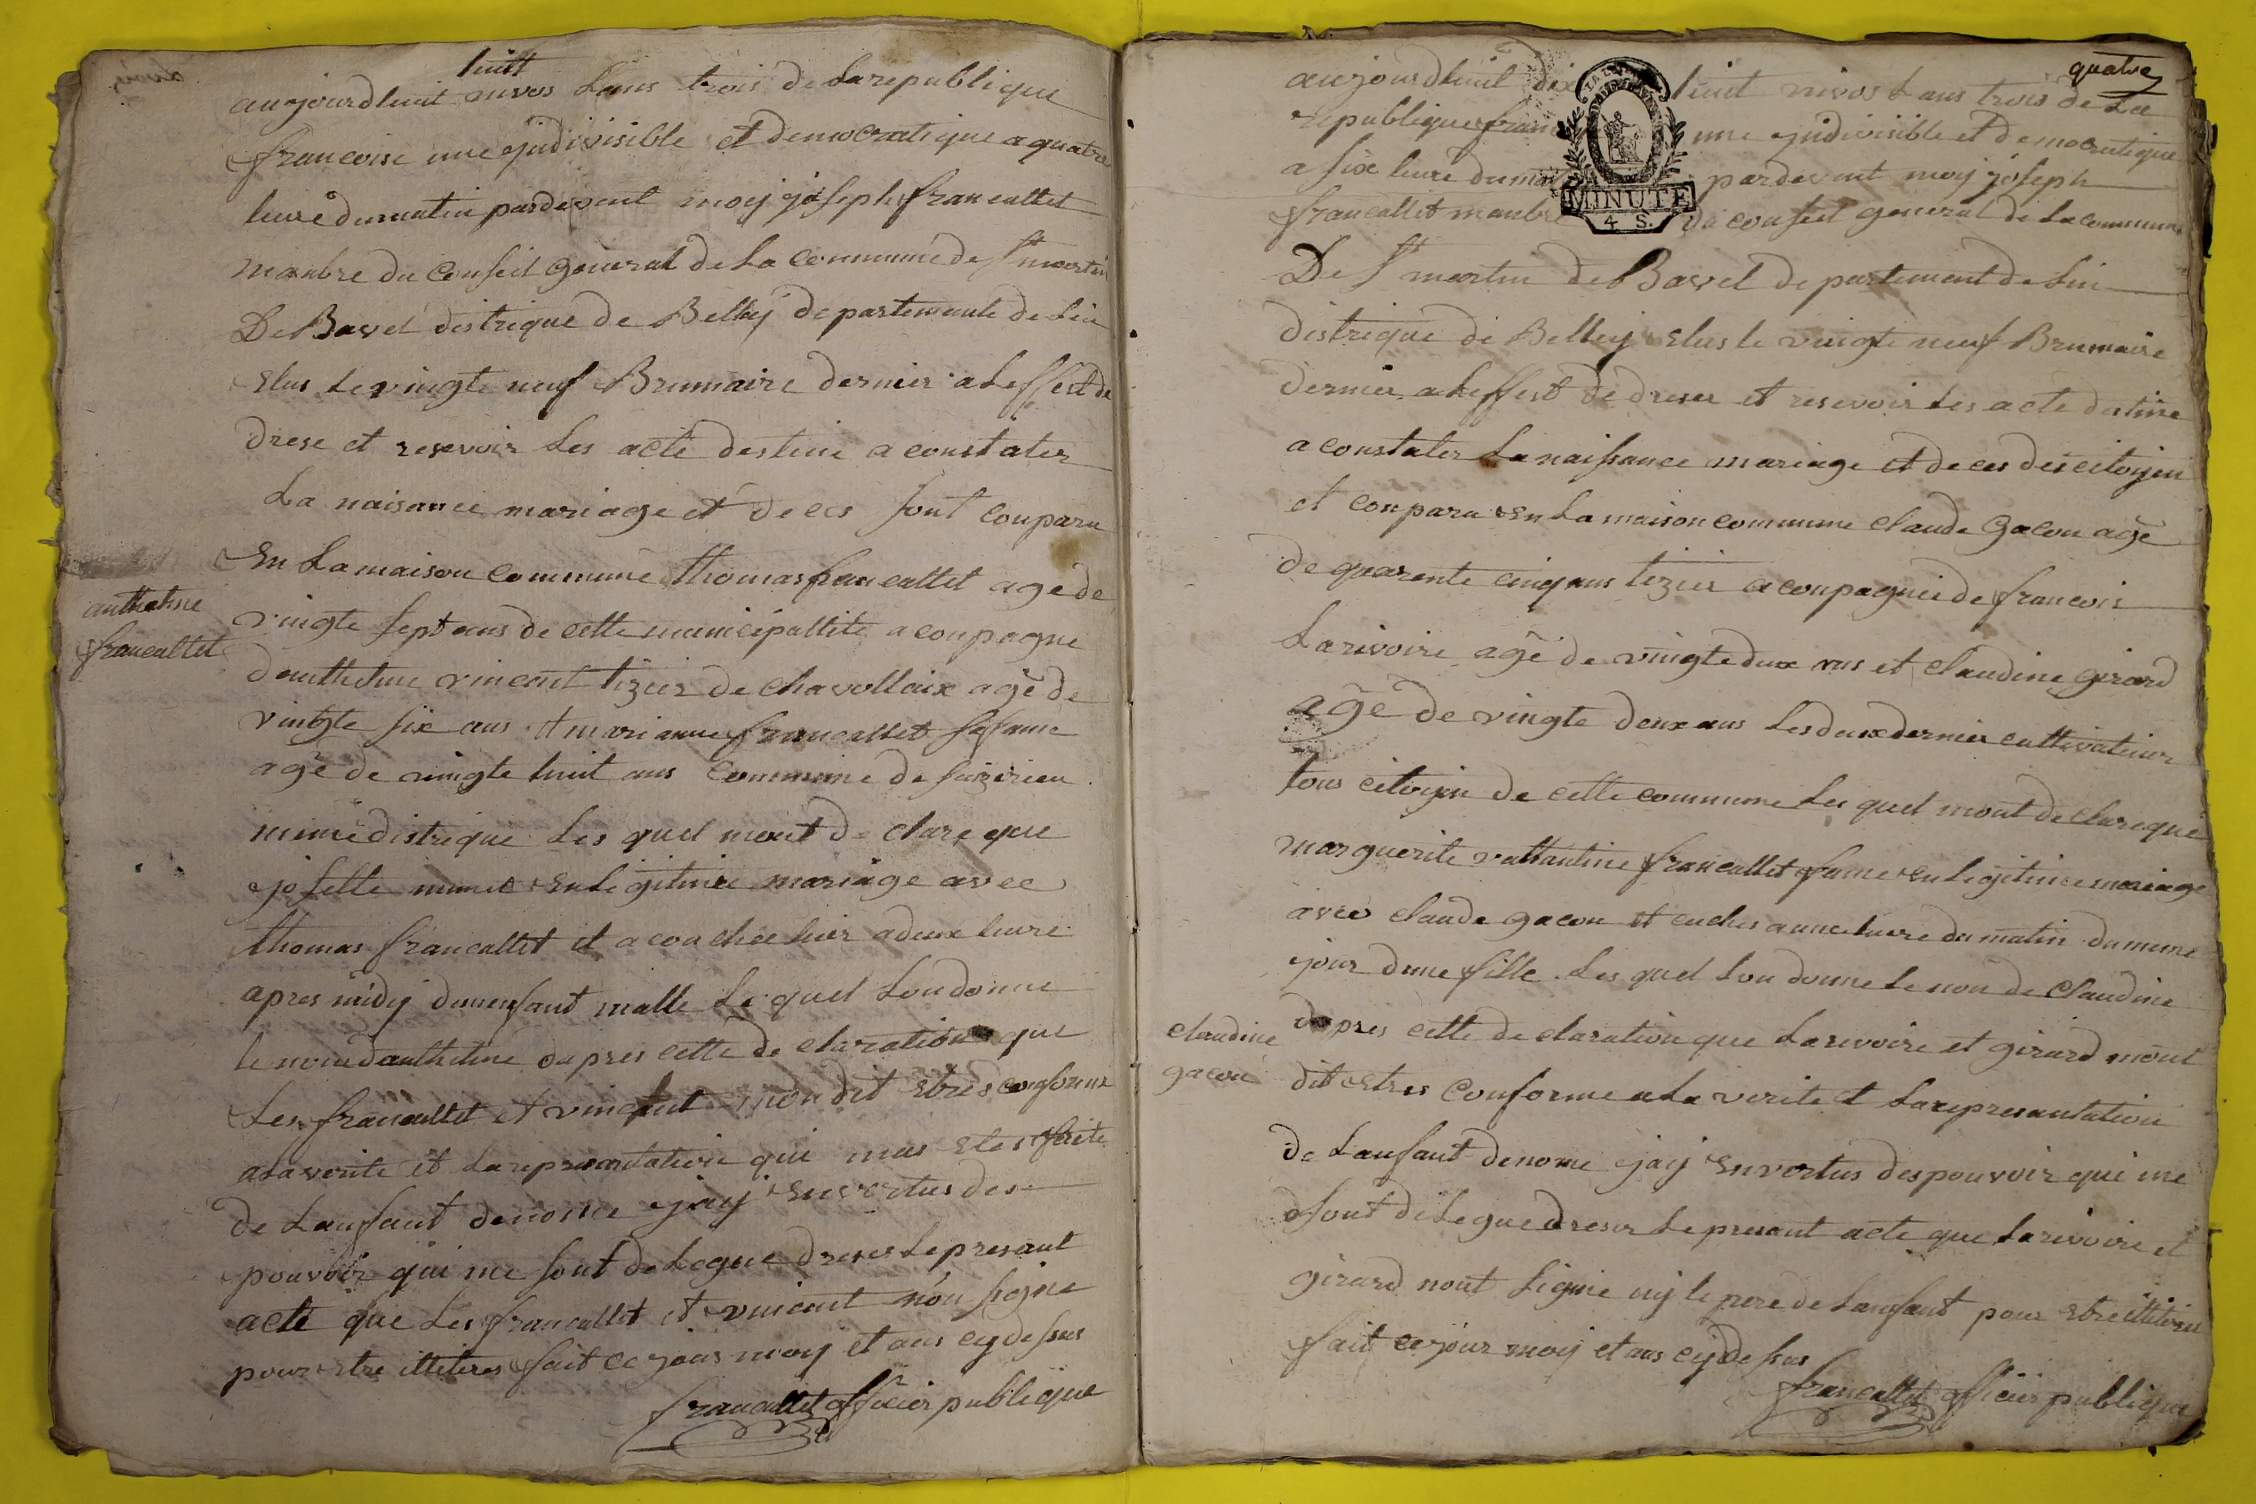 huit
aujourdhuit nivos Lans trois de La republique
francoise une yndivisible et democratique a quatre
heure du matin pardevent moy joseph francallet
manbre du Conseil general de La Commune de St martin
De Bavel distrique de Belley departemente de Lin
Elus Le vingte neuf Brumaire dernier a Leffect de
drese et resevoir Les acte destine a constater
La naisance mariage et deces sont conparu
En La maison Commune thomas francallet age de
vingte sept ans de cette municipallite aconpagne
danthelme vincent tizier de Chavollaix age de
vingte six ans et marianne francallet sa fame
agé de vingte huit ans Commune de suizirieu
meme distrique Les quel mont declare que
josette munet En Legitimée mariage avec
thomas francallet et acouchee hier a deux heure
apres midy dun enfant malle Le quel Lon donne
le nom danthelme dapres cette declaration que
Les francallet et vincent mon dit Etres conforme
a La verite et La representation qui mas Etes faite
de Lanfant denome jay En vertus des
pouvoir qui me sont delegue dreser Le presant
acte que Les francallet et vincent non signe
pour Etre illiteres fait ce jour moy et ans cy desus
francallet officier publique
anthelme
francallet
quatre
aujourdhuit dix huit nivos Lans trois de La
republique franc une yndivisible et democratique
a six heure du mat pardevent moy joseph
francallet manbre du conseil general de La commune
De St martin de Bavel departement de Lin
distrique de Belley Elus le vingte neuf Brumaire
dernier a Leffest de dreser et resevoir Les acte destine
a constater La naissance mariage et deces des citoyen
et conparu En La maison commune claude Gacon agé
de quarente cinq ans tizier aconpagnié de francois
Larivoire agé de vingte deux ans et claudine girard
agé de vingte deux ans Les deux dernier cultivateur
tous citoyen de cette commune Les quel mont declare que
marguerite vallantine francallet fame En Legitimee mariage
avec claude gacon et acouchee a une heure du matin du meme
jour dune fille Les quel Lon donne Le nom de claudine
dapres cette declaration que Larivoire et girard mont
dit Etres Conforme a La verite et La representation
de Lanfant denome jay En vertus des pouvoir qui me
sont delegue dreser Le presant acte que Larivoire et
girard nont signie ny le pere de Lanfant pour Etre illiteres
fait ce jour moy et ans cy desus
francallet officier publique
claudine
gacon
MINUTE
4 S.